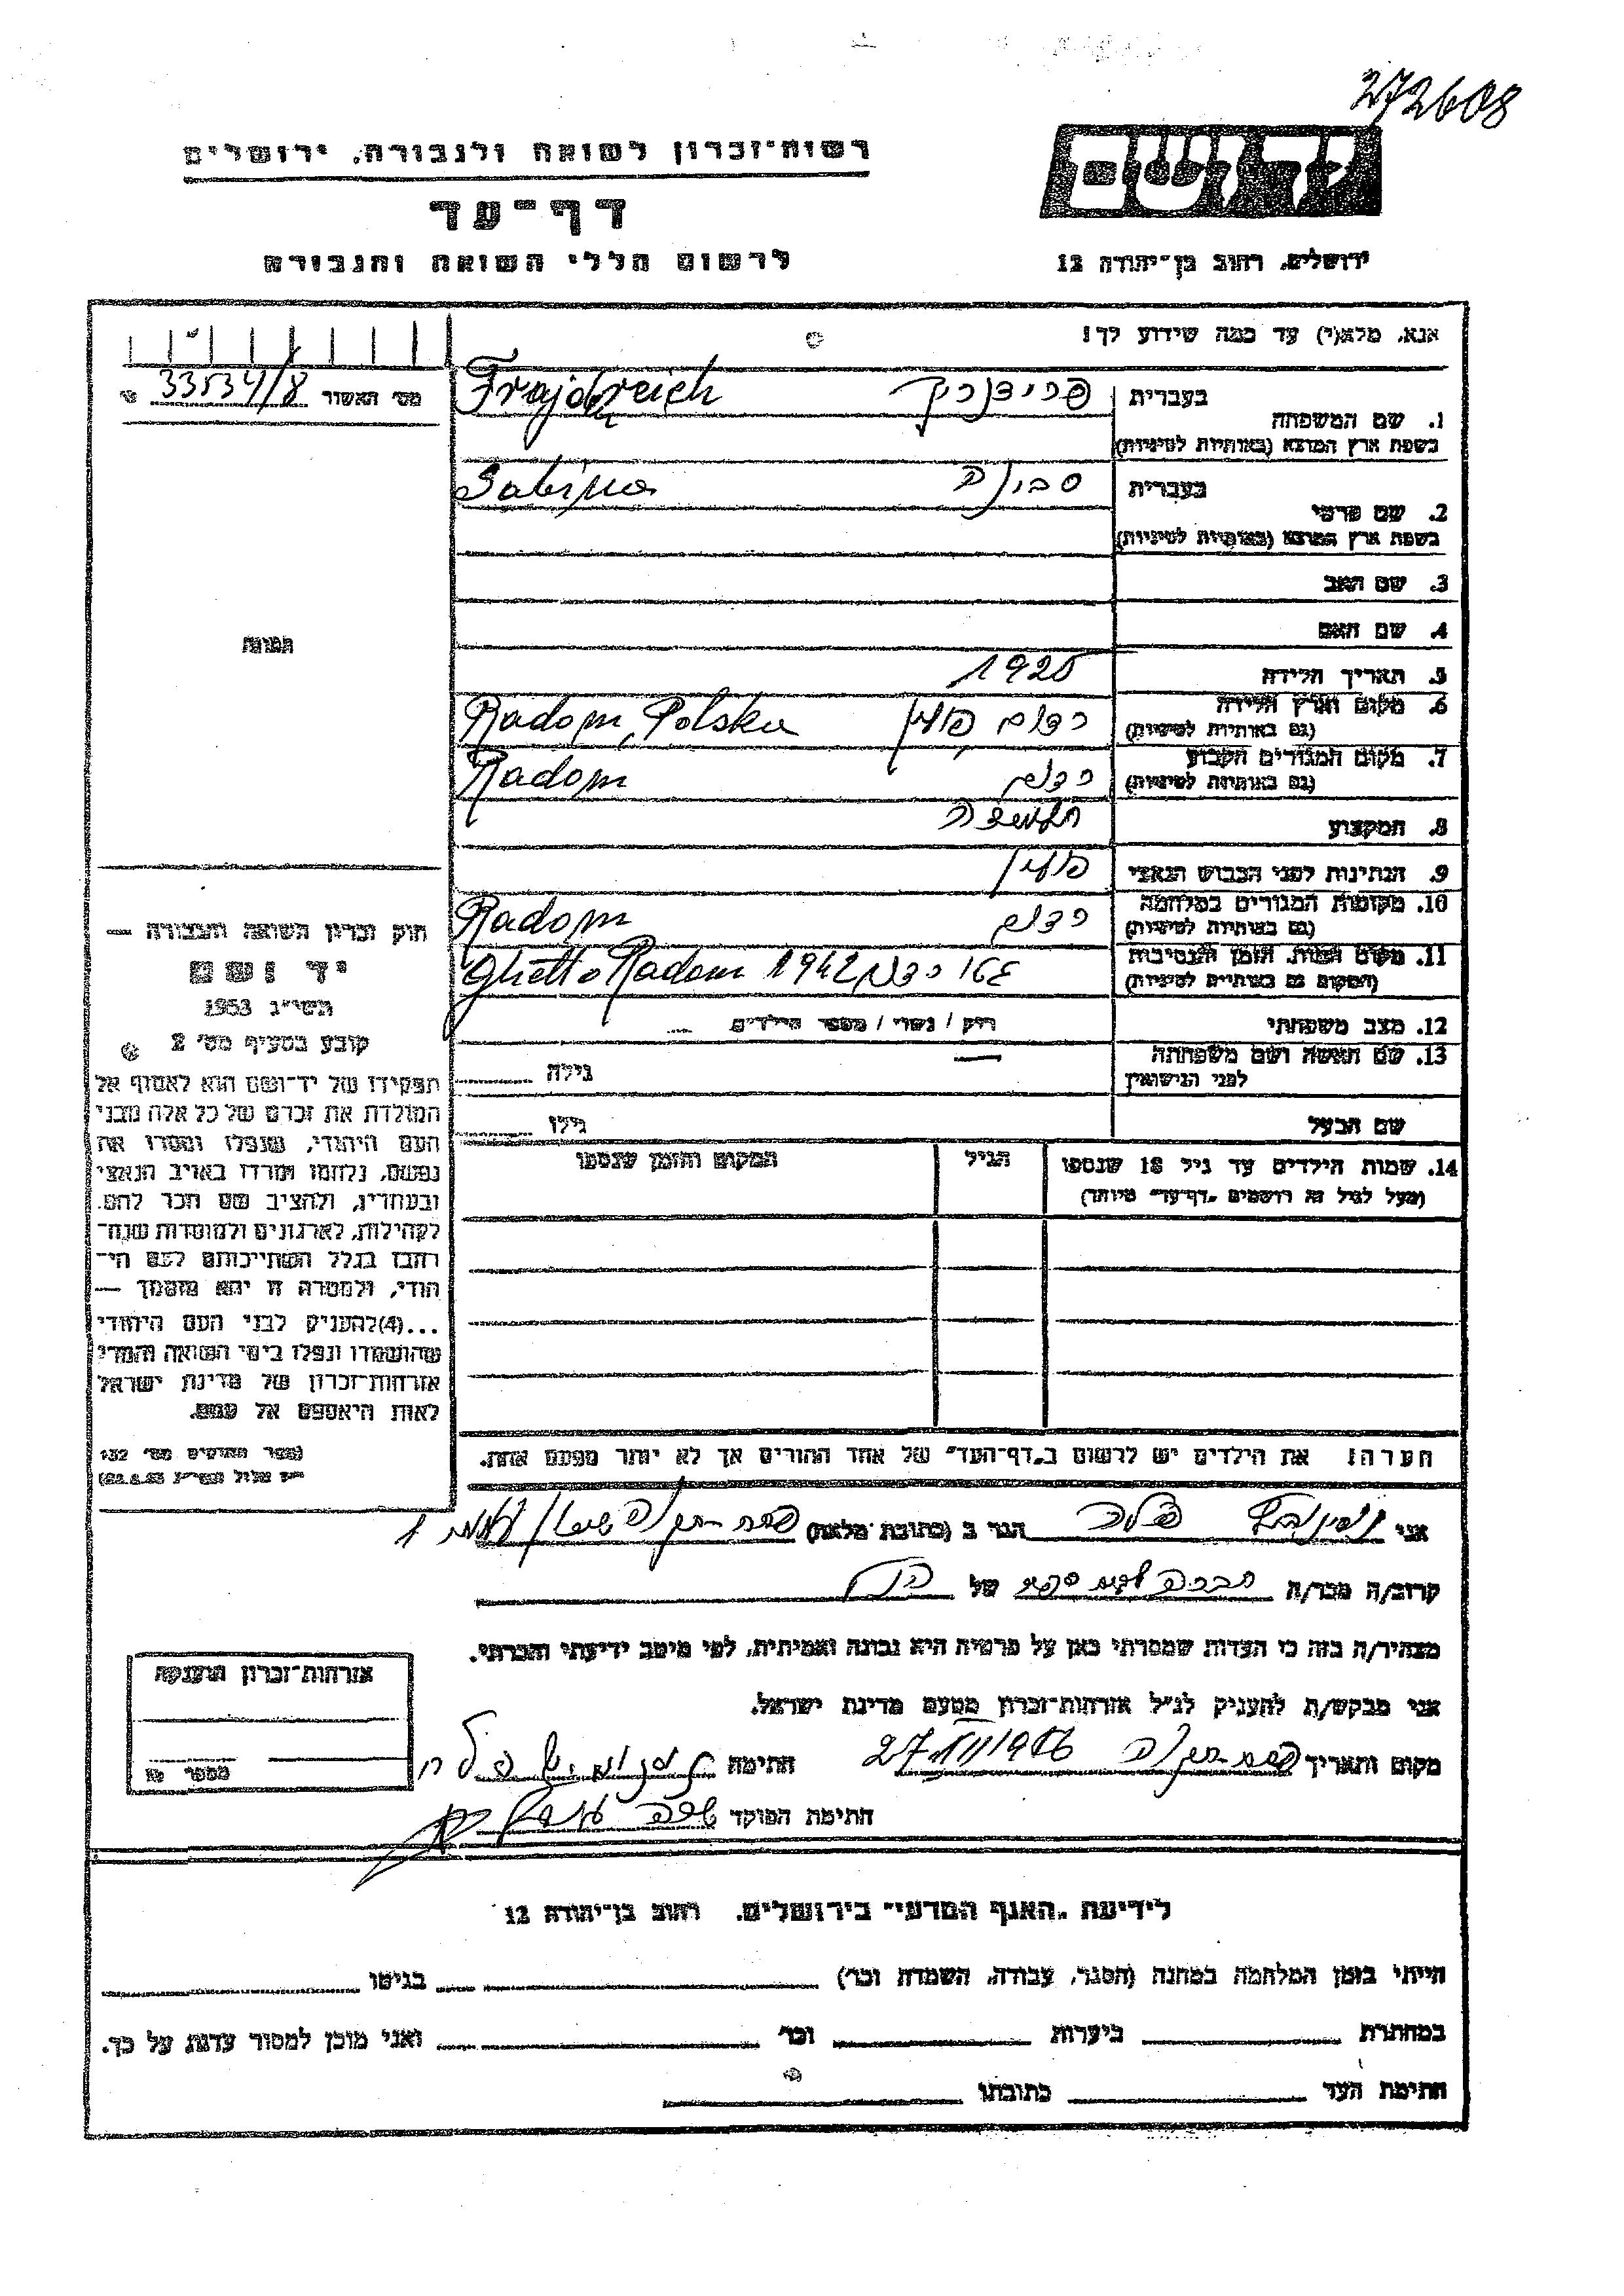 272608
רשות-זכרון לשואה ולגבורה, ירושלים
יד ושם
דף-עד
לרשום חללי השואה והגבורה
ירושלים, רחוב בן-יהודה 12
אנא, מלא(י) עד כמה שידוע לך!
מס' האשור 33534/8
1. שם המשפחה
בעברית פרידרייך Frajdreich
בשפת ארץ המוצא (באותיות לטיניות)
2. שם פרטי
בעברית סבינה Sabina
בשפת ארץ המוצא (באותיות לטיניות)
3. שם האב
4. שם האם
5. תאריך הלידה 1925
6. מקום וארץ הלידה רדום פולין Radom, Polska
(גם באותיות לטיניות)
7. מקום המגורים הקבוע רדום Radom
(גם באותיות לטיניות)
8. המקצוע תלמידה
9. הנתינות לפני הכבוש הנאצי פולין
10. מקומות המגורים במלחמה רדום Radom
(גם באותיות לטיניות)
11. מקום המות, הזמן והנסיבות גטו רדום 1942 Ghetto Radom
(המקום גם באותיות לטיניות)
12. מצב משפחתי רוק / נשוי / מספר הילדים
13. שם האשה ושם משפחתה — גילה
לפני הנישואין
שם הבעל גילו
14. שמות הילדים עד גיל 18 שנספו הגיל המקום והזמן שנספו
(מעל לגיל זה רושמים "דף-עד" מיוחד)
הערה: את הילדים יש לרשום ב"דף-העד" של אחד ההורים אך לא יותר מפעם אחת.
התמונה
חוק זכרון השואה והגבורה —
יד ושם
תשי"ג 1953
קובע בסעיף מס' 2
תפקידו של יד-ושם הוא לאסוף אל
המולדת את זכרם של כל אלה מבני
העם היהודי, שנפלו ומסרו את
נפשם, נלחמו ומרדו באויב הנאצי
ובעוזריו, ולהציב שם וזכר להם,
לקהילות, לארגונים ולמוסדות שנח-
רבו בגלל השתייכותם לעם הי-
הודי, ולמטרה זו יהא מוסמך —
...(4) להעניק לבני העם היהודי
שהושמדו ונפלו בימי השואה והמרי
אזרחות-זכרון של מדינת ישראל
לאות היאספם אל עמם.
(ספר החוקים מס' 132
י"ז אלול תשי"ג 28.8.53)
אני הגר ב (כתובת מלאה) פתח-תקוה 1
קרוב/ה מכר/ה חברה של
מצהיר/ה בזה כי העדות שמסרתי כאן על פרטיה היא נכונה ואמיתית, לפי מיטב ידיעתי והכרתי.
אני מבקש/ת להעניק לנ"ל אזרחות-זכרון מטעם מדינת ישראל.
מקום ותאריך פתח-תקוה חתימה
חתימת הפוקד
אזרחות-זכרון הוענקה
מספר
לידיעת "האגף המדעי" בירושלים, רחוב בן-יהודה 12
הייתי בזמן המלחמה במחנה (הסגר, עבודה, השמדה וכו') בגיטו
במחתרת ביערות וכו' ואני מוכן למסור עדות על כך.
חתימת העד כתובתו